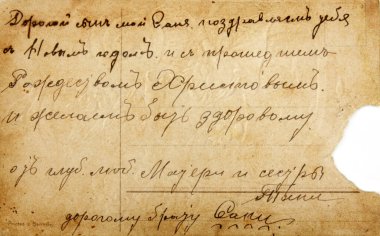 Дорогой сынъ мой Саня. поздравляемъ тебя
съ Новымъ годомъ. и съ прошедшемъ
Рождествомъ Христовымъ.
и желаемъ быть здоровому
отъ глуб. люб. Матери и сестры
Тани
дорогому брату Сани